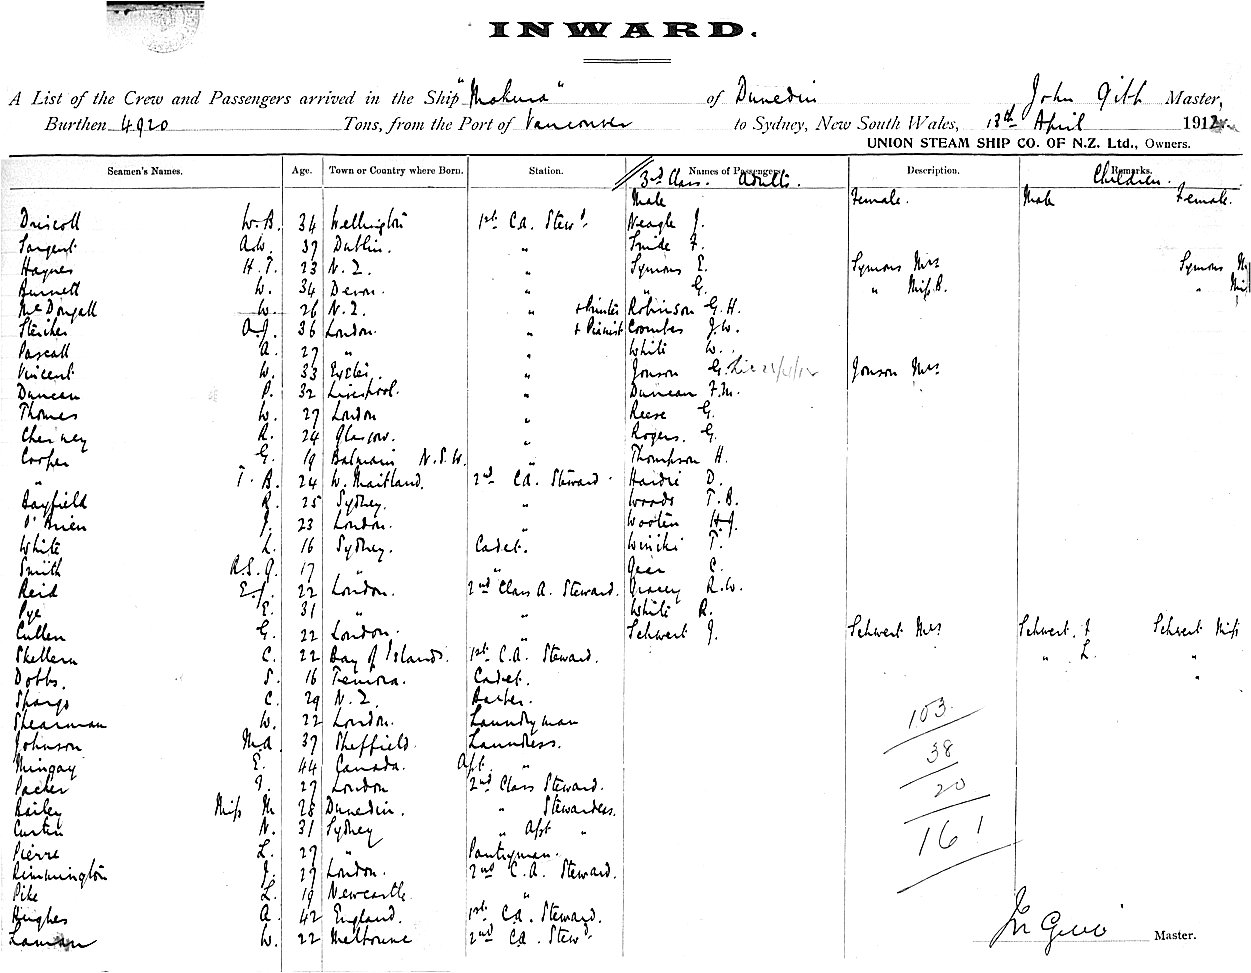 INWARD.
A List of the Crew and Passengers arrived in the Ship "Makura" of Dunedin John Gibb Master,
Burthen 4920 Tons, from the Port of Vancouver to Sydney, New South Wales, 13th April 1912
UNION STEAM SHIP CO. OF N.Z. Ltd., Owners.
Seamen's Names. Age. Town or Country where Born. Station. Names of Passengers. Description. Remarks.
3rd Class. Adults. Children.
Male Female. Male Female.
Driscoll W.A. 34 Wellington 1st Ca. Stewd. Neagle J.
Sargent A.W. 37 Dublin. " F.
Haynes H.T. 23 N.Z. " Symons E. Symons Mrs Symons
Burnett W. 34 Devon. " " G. " Miss B. "
McDougall W. 26 N.Z. " + Printer Robinson G.H.
A.J. 36 London. " + Pianist Coombes J.W.
Pascall A. 27 " " White W.
Vincent W. 33 Exeter. " Jonson G. Jonson Mrs
Duncan P. 32 Liverpool. " Duncan F.M.
Thomes W. 27 London " Reese G.
R. 24 Glasgow. " Rogers. G.
Cooper G. 19 Balmain N.S.W. " Thompson H.
" T.B. 24 W. Maitland. 2nd Ca. Steward. Hardie D.
Bayfield R. 25 Sydney. " Woods T.B.
O'Brien J. 23 London. " Wooten H.J.
White L. 16 Sydney. Cadet. T.
Smith R.S.G. 17 " " Gear C.
Reid E.J. 22 London. 2nd Class A. Steward. Gracey R.W.
Pye E. 31 " " White R.
Cullen G. 22 London. " Schwert J. Schwert Mrs Schwert. Schwert Miss
Skellern C. 22 Bay of Islands. 1st C.A. Steward. " L. "
Dobbs. S. 16 Temora. Cadet. "
Sharp C. 29 N.Z. Barber.
Shearman W. 22 London. Laundryman 103.
Johnson Md. 37 Sheffield. Laundress.
Mingay E. 44 Canada. Asst. " 38
Packer 27 London 2nd Class Steward.
Bailey Miss M 28 Dunedin. " Stewardess. 20
Curtin N. 31 Sydney " Asst "
Pierre L. 27 " Pantryman. 161
Rimmington J. 27 London. 2nd C.A. Steward.
Pike L. 19 Newcastle. "
Hughes A. 42 England. 1st Ca. Steward.
Laman W. 22 Melbourne 2nd Ca. Stewd. Jn Gibb Master.